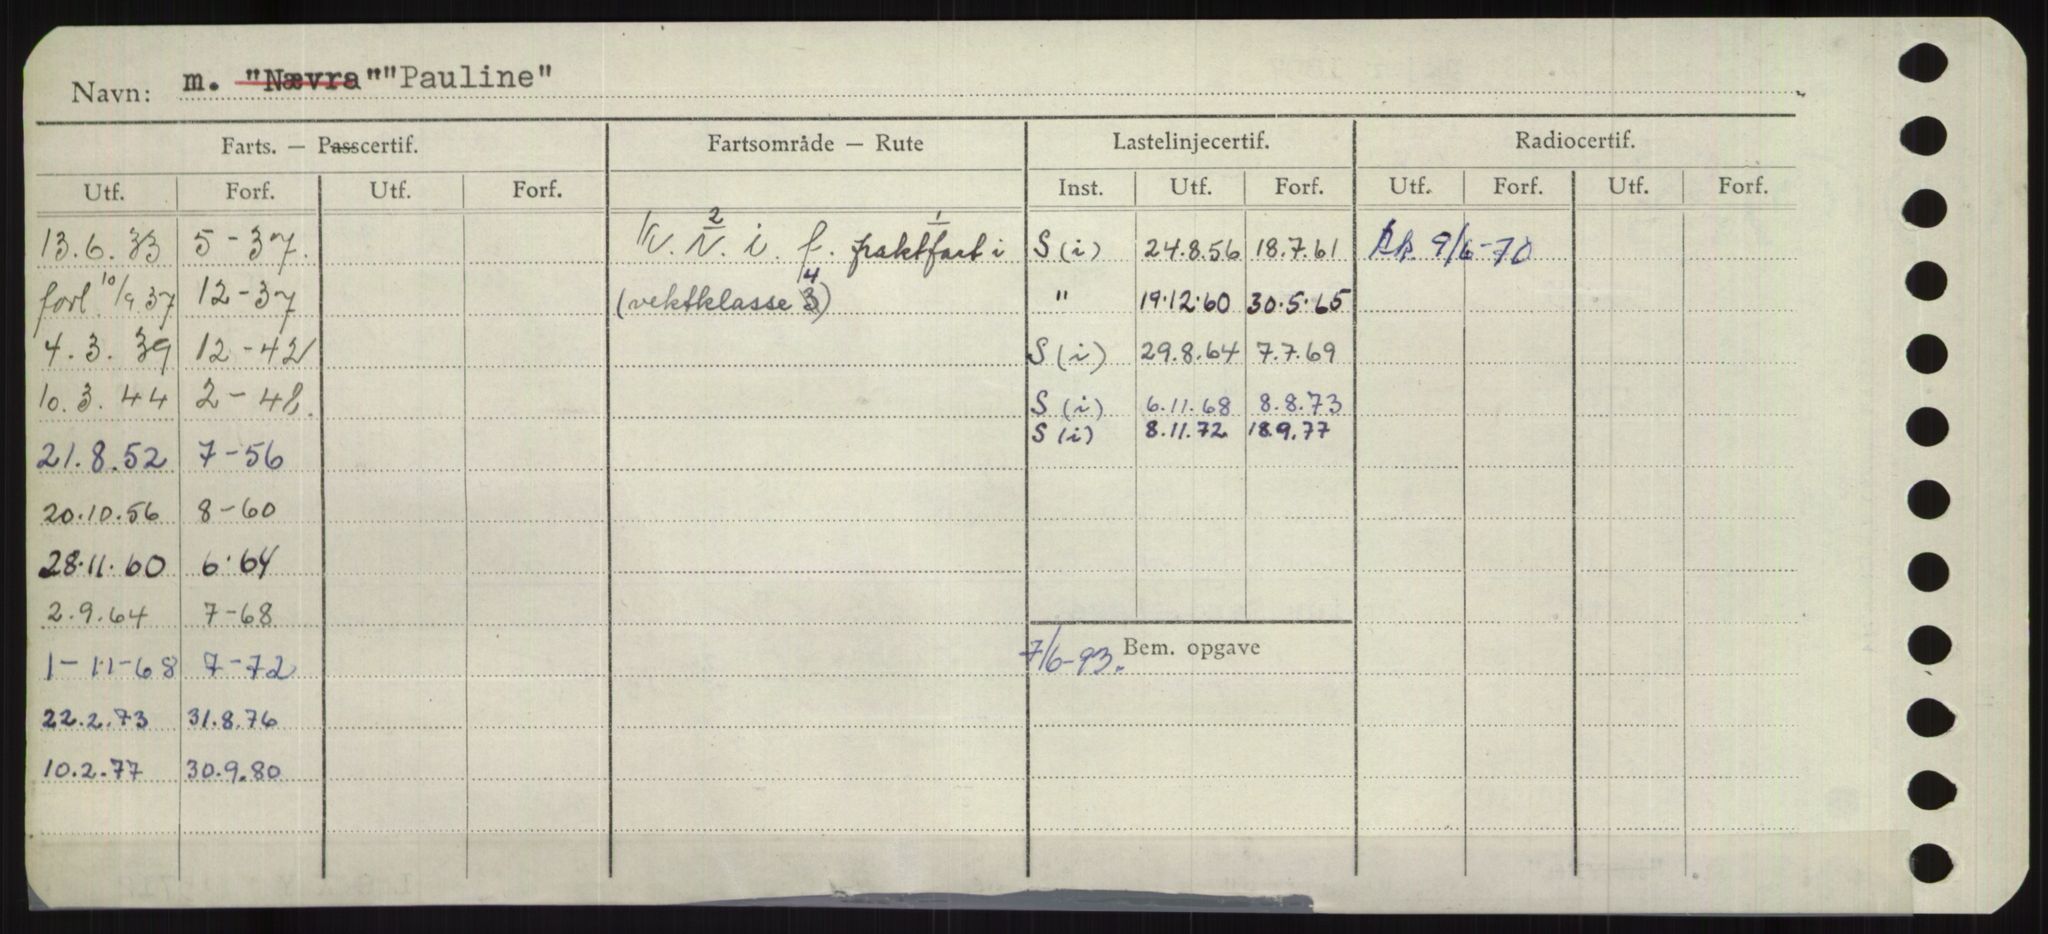 Navn: m. "Nævra" "Pauline"
Farts. — Passcertif. Fartsområde — Rute Lastelinjecertif. Radiocertif.
Utf. Forf. Utf. Forf. Inst. Utf. Forf. Utf. Forf. Utf. Forf.
13.6.33 5-37. 2 1 i. f. fraktfart i S (i) 24.8.56 18.7.61 9/6-70
forl. 10/9.37 12-37 (vektklasse 3) 4 " 19.12.60 30.5.65
4.3.39 12-42 S (i) 29.8.64 7.7.69
10.3.44 2-48. S (i) 6.11.68 8.8.73
S (i) 8.11.72 18.9.77
21.8.52 7-56
20.10.56 8-60
28.11.60 6.64
2.9.64 7-68
Bem. opgave
1-11-68 7-72 7/6-93.
22.2.73 31.8.76
10.2.77 30.9.80